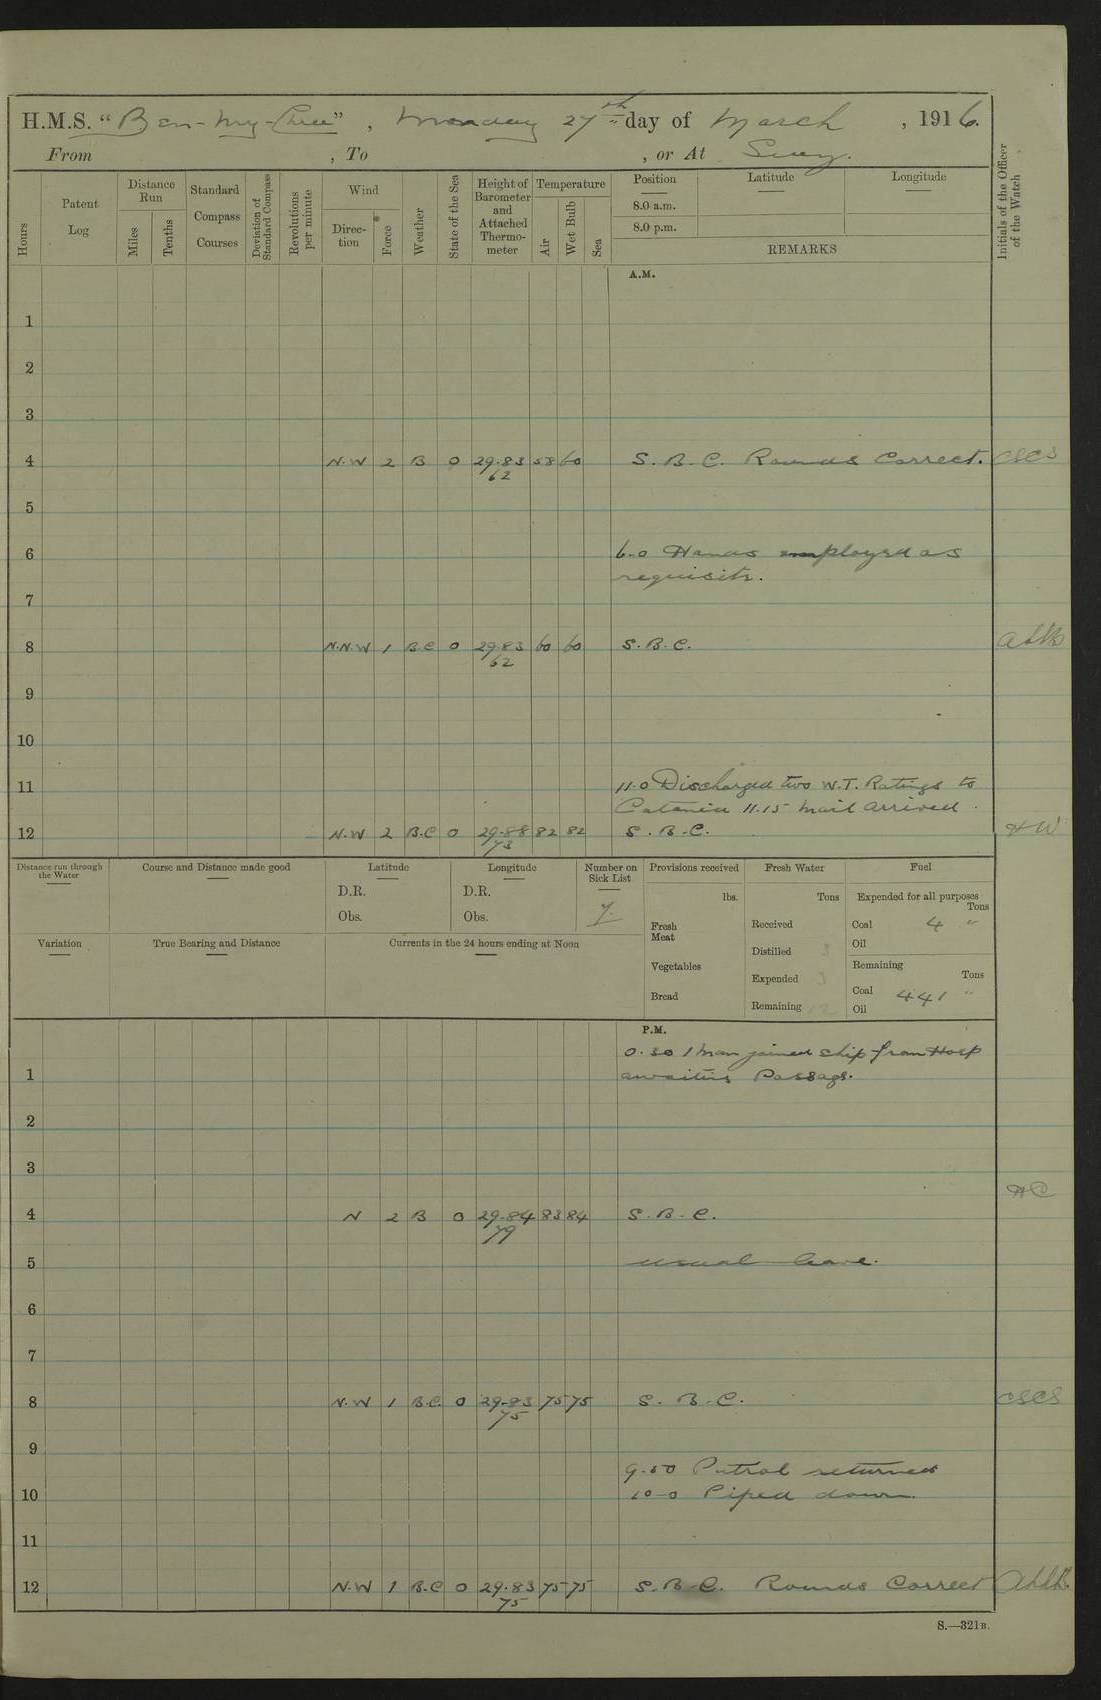 H.M.S. "Ben-my-Chree", Monday 27th day of March, 1916.
From , To , or At Suez.
Hours
Patent Log
Distance Run
Miles
Tenths
Standard Compass Courses
Deviation of Standard Compass
Revolutions per minute
Wind
Direction
Force *
Weather
State of the Sea
Height of Barometer and Attached Thermometer
Temperature
Air
Wet Bulb
Sea
Position
8.0 a.m.
8.0 p.m.
Latitude
Longitude
REMARKS
Initials of the Officer of the Watch
A.M.
1
2
3
4 N.W 2 B 0 29.83 58 60 S.B.C. Rounds Correct. CSCS
62
5
6 6.0 Hands employed as
requisite.
7
8 N.N.W 1 B.C 0 29.83 60 60 S.B.C.
62
9
10
11 11.0 Discharged two W.T. Ratings to
Catania 11.15 Mail arrived.
12 N.W 2 B.C 0 29.88 82 82 S.B.C. HW
73
Distance run through the Water
Course and Distance made good
Latitude
D.R.
Obs.
Longitude
D.R.
Obs.
Number on Sick List
7.
Provisions received
lbs.
Fresh Meat
Vegetables
Bread
Fresh Water
Tons
Received
Distilled 3
Expended 3
Remaining
Fuel
Expended for all purposes
Tons
Coal 4 "
Oil
Remaining
Tons
Coal 441 "
Oil
Variation
True Bearing and Distance
Currents in the 24 hours ending at Noon
P.M.
0.30 1 man joined ship from Hosp
1 awaiting Passage.
2
3
4 N 2 B 0 29.84 83 84 S.B.C. HC
79
5 usual leave.
6
7
8 N.W 1 B.C. 0 29.83 75 75 S.B.C. CSCS
75
9
9.50 Patrol returned
10 10-0 Piped down.
11
12 N.W 1 B.C 0 29.83 75 75 S.B.C. Rounds Correct
75
S.—321B.